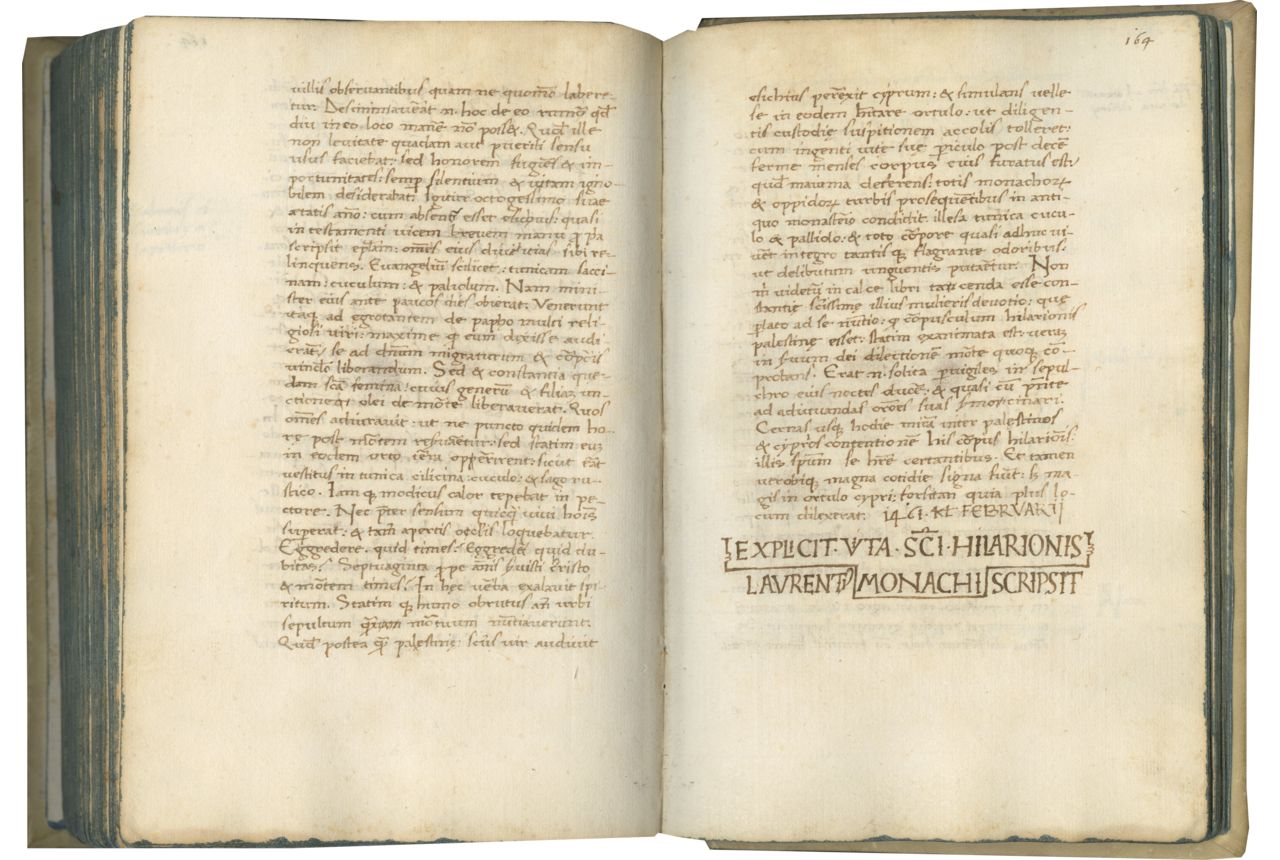 villis observantibus quam ne quom̄o labere-
tur. Descimmaverāt n. hoc de eo rumor̄ qd̄
diu in eo loco manē nō posset. Quod ille
non levitate quadam aut puerili sensu
usus faciebat: sed honorem fugiēs & im-
portunitatē: semp̄ silentium & vitam igno-
bilem desiderabat. Igitur octogessimo suae
ætatis año: cum absens esset esichius: quasi
in testamenti vicem brevem manu ꝓpa
scripsit epl̄am: omēs eius divitias sibi re-
linquens. Evangeliū scilicet: tunicam sacci-
nam: cuculum: & paliolum. Nam mini-
ster eius ante paucos dies obierat. Venerunt
itaq ad egrotantem de papho multi reli-
giosi viri: maxime q̄ eum dixisse audi-
erāt: se ad dnūm migraturum & corp̄is
vincl̄o liberandum. Sed & constancia que-
dam scā femina: cuius generū & filiaȝ un-
ctione olei de mōte liberaverat. Quos
omēs adiuravit: ut ne puncto quidem ho-
rę post mōtem reservaretur: sed statim eūȝ
in eodem orto tērra opperirent: sicut erāt
vestitus in tunica cilicina: cuculo: & sago ru-
stico. Iam q̄ modicus calor tepebat in pe-
ctore. Nec p̄ter sensum quicq̄ vivi hoīs
superat: & tam̄ apertis oculis loquebatur.
Eggredere. quid times? Eggredē quid du-
bitas? Septuaginta ꝓpe anīs servisti christo
& mōtem times? In hęc verba exalavit spi-
ritum. Statim q̄ humo obrutus an̄ urbi
sepultum q̄ mōtuum nūtiaverunt.
Quod postea q̄ palestinę scūs vir audivit
164
esichius perēxit cyprum: & simulans velle-
se in eodem hītare ortulo: ut diligen-
tis custodie suspitionem accolis tolleret:
cum ingenti vite suę piculo post decē
ferme menses corpus eius furatus est:
quod maiuma deferens: totis monachorꝝ
& oppidorꝝ turbis prosequētibus in anti-
quo monasterio condidit. illesa tunica cucu-
lo & palliolo: & toto corpore quasi adhuc vi-
veret integro tantis q̄ flagrante odoribus:
ut delibutum unguentis putaretur. Non
m̄ videtur in calce libri tacenda esse con-
stantię scīssimę illius mulieris devotio: quę
plato ad se nūtio: q̄ corpusculum hilarionis
palestinę esset: statim exanimata est: veraȝ
in servum dei dilectionem mōte quoq cō-
probans. Erat n. solita pvigiles in sepul-
chro eius noctes ducere: & quasi cū p̄nte
ad adiuvandas orōes suas sermocinari.
Cernas usq hodie miram inter palestinos
& cyprīos contentionem his corpus hilariōis:
illis spūm se hrē certantibus. Et tamen
utrobiq magna cotidie signa fiūt: sȝ ma-
gis in ortulo cypri: forsitan quia plus lo-
cum dilexerat. 1461. KL FEBRVARII
EXPLICIT·VITA·SC̄I·HILARIONIS
LAVRENTIVS MONACHI SCRIPSIT